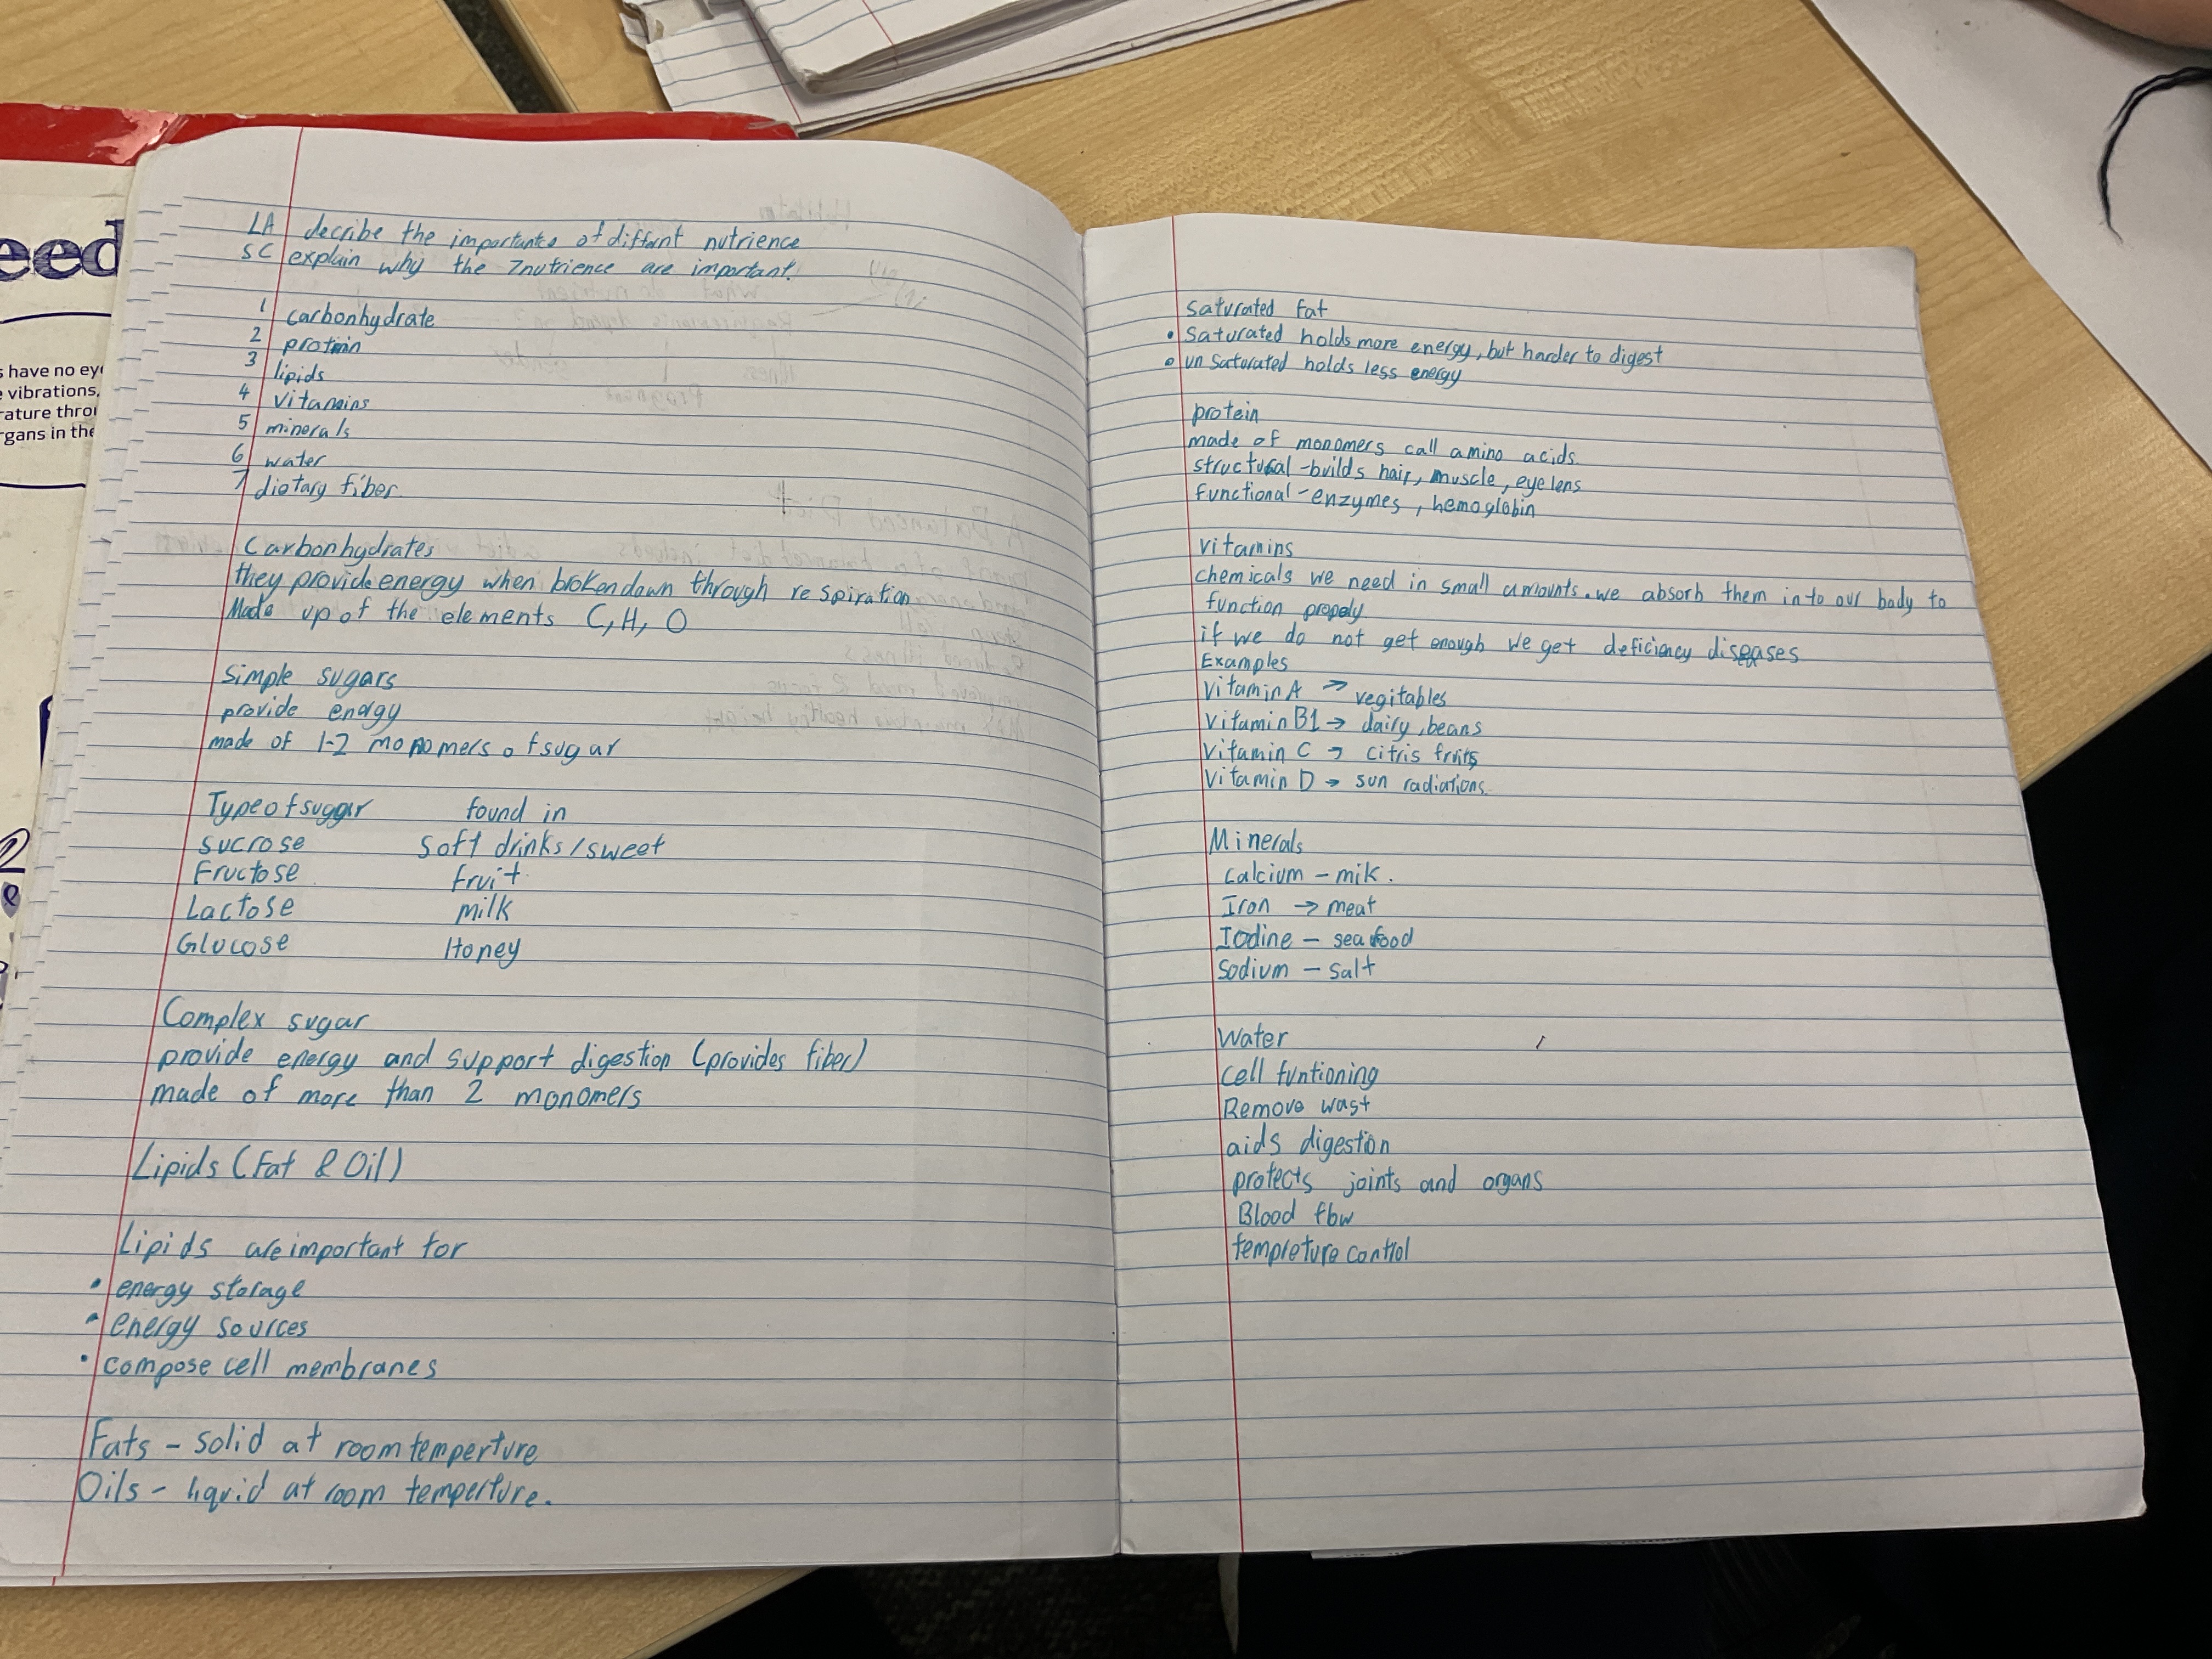 eed
s have no ey
e vibrations,
rature throu
rgans in the
LA decribe the importantce of diffant nutrience
SC explain why the 7nutrience are important!
1 carbonhydrate
2 protein
3 lipids
4 vitamins
5 minerals
6 water
7 dietary fiber.
Carbonhydrates
they provide energy when broken down through respiration
Made up of the elements C, H, O
simple sugars
provide energy
made of 1-2 monomers of sugar
Type of suggar found in
sucrose soft drinks/sweet
Fructose fruit
Lactose milk
Glucose Honey
Complex sugar
provide energy and support digestion (provides fiber)
made of more than 2 monomers
Lipids (Fat & Oil)
Lipids are important for
• energy storage
• energy sources
• compose cell membranes
Fats - solid at room temperture
Oils - liquid at room temperture.
saturated fat
• saturated holds more energy, but harder to digest
• un saturated holds less energy
protein
made of monomers call amino acids.
structural - builds hair, muscle, eye lens
functional - enzymes, hemoglobin
vitamins
chemicals we need in small amounts. we absorb them in to our body to
function propely.
if we do not get enough we get deficiency diseases
Examples
vitamin A → vegitables
vitamin B1 → dairy, beans
vitamin C → citris fruits
vitamin D → sun radiations.
Minerals
calcium - mik.
Iron → meat
Iodine - sea food
sodium - salt
Water
cell funtioning
Remove wast
aids digestion
protects joints and organs
Blood flow
tempreture control